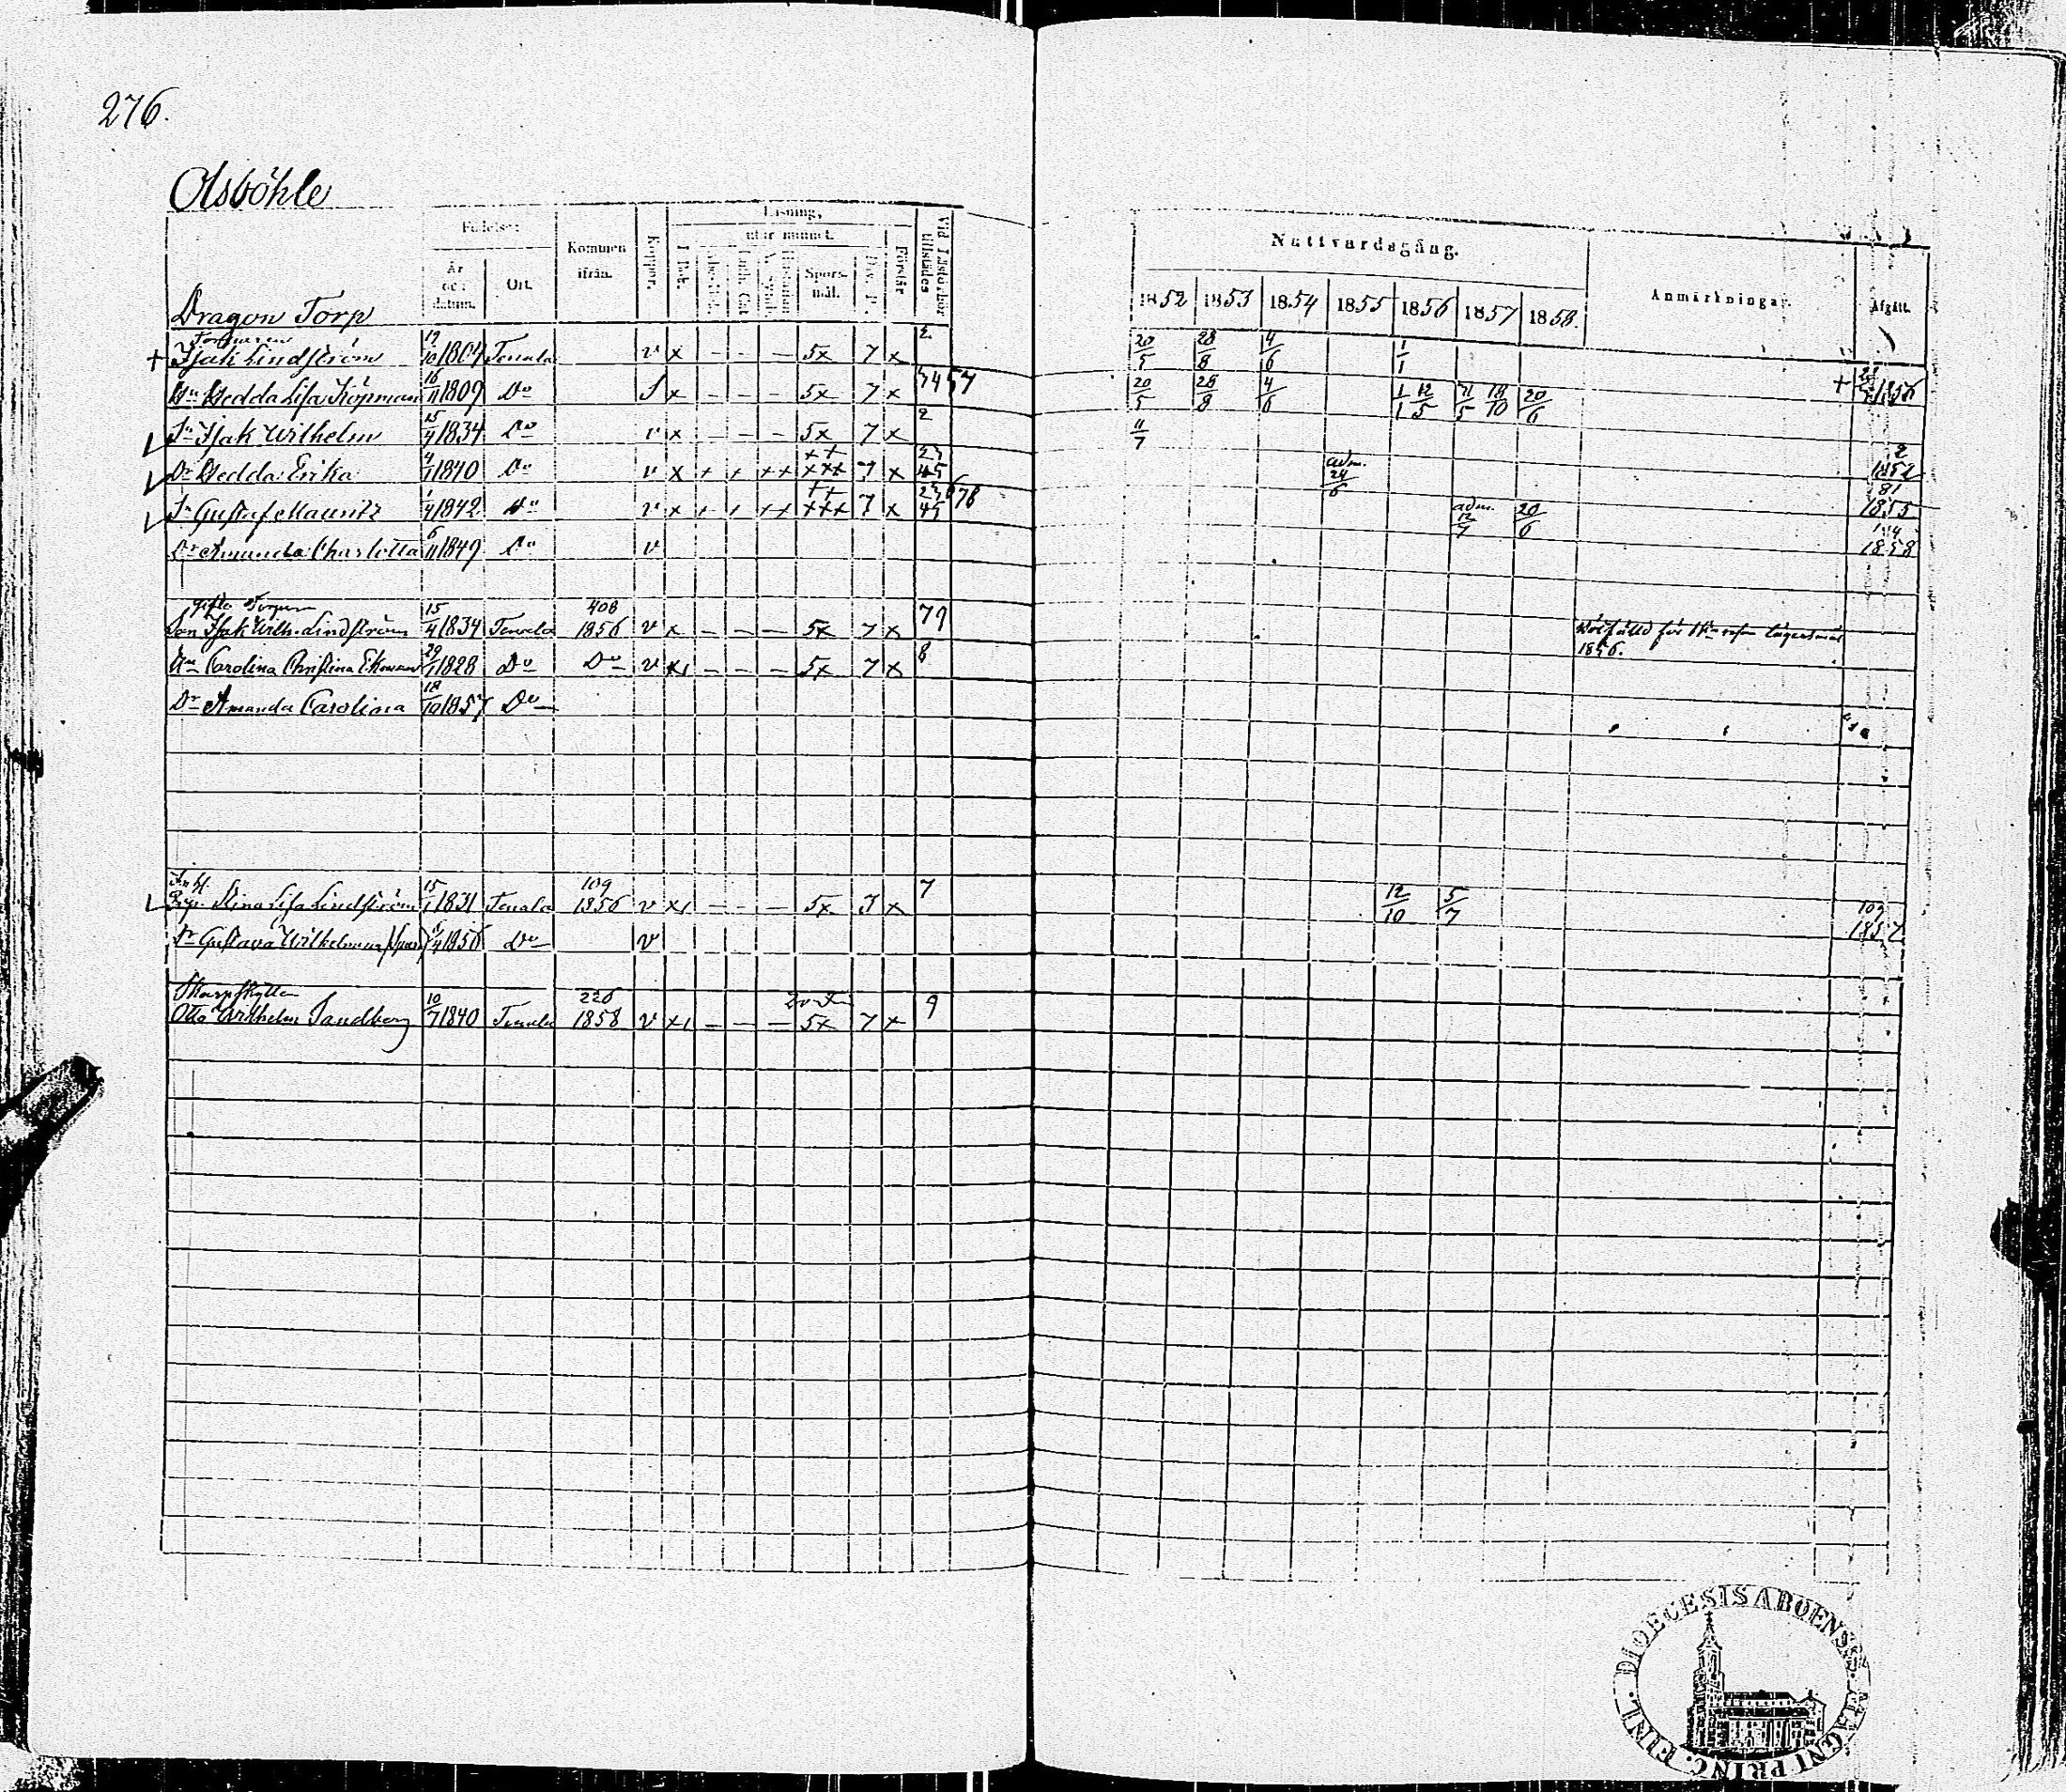 276.
Olsböhle
Födelse: Kommen ifrån. Koppor. Läsning, utur minnet. Förstår Vid Läsförhör tillstädes Nattvardsgång. Anmärkningar. Afgått.
År och datum. Ort. I Bok. Spörsmål. 1852 1853 1854 1855 1856 1857 1858.
Dragon Torp
Torparen 17 2 20 28 4 1
+ Isak Lindström 10 1804 Tenala v x – – – 5x 7 x 5 8 6 1
16 20 28 4 1 12 18 20 +
Hu Hedda Lisa Köpman 11 1809 Do S x – – – 5x 7 x 5 8 6 1 5 5 10 6 1856
15 2 11
Sn Isak Wilhelm 4 1834 Do v x – – – 5x 7 x 7 2
4 ++ adm. 1852
Dr Hedda Erika 1 1840 Do v x + + ++ +++ 7 x 45 24 6 81
1 ++ adm. 20 1855
Sn Gustaf Mauritz 4 1842 Do v x + + ++ +++ 7 x 45 678 12 7 6
6 1858
Dr Amanda Charlotta 11 1849 Do v
gifte Torpar 15 408 79
Son Isak Wilh. Lindström 4 1834 Tenala 1856 v x – – – 5x 7 x 1856.
29 8
Hu Carolina Christina Ekman 7 1828 Do Do v x1 – – – 5x 7 x
18
Dr Amanda Carolina 10 1857 Do
Inh. 15 109 7 12 5
Pig. Stina Lisa Lindström 1 1831 Tenala 1856 v x1 – – – 5x 7 x 10 7 109
1857
Dr Gustava Wilhelmina 4 1856 Do v
Skarpskytten 10 226 9
Otto Wilhelm Sandberg 7 1840 Tenala 1858 v x1 – – – 5x 7 x
DIOECESIS ABOENSIS. MAGNI PRINC. FINL.